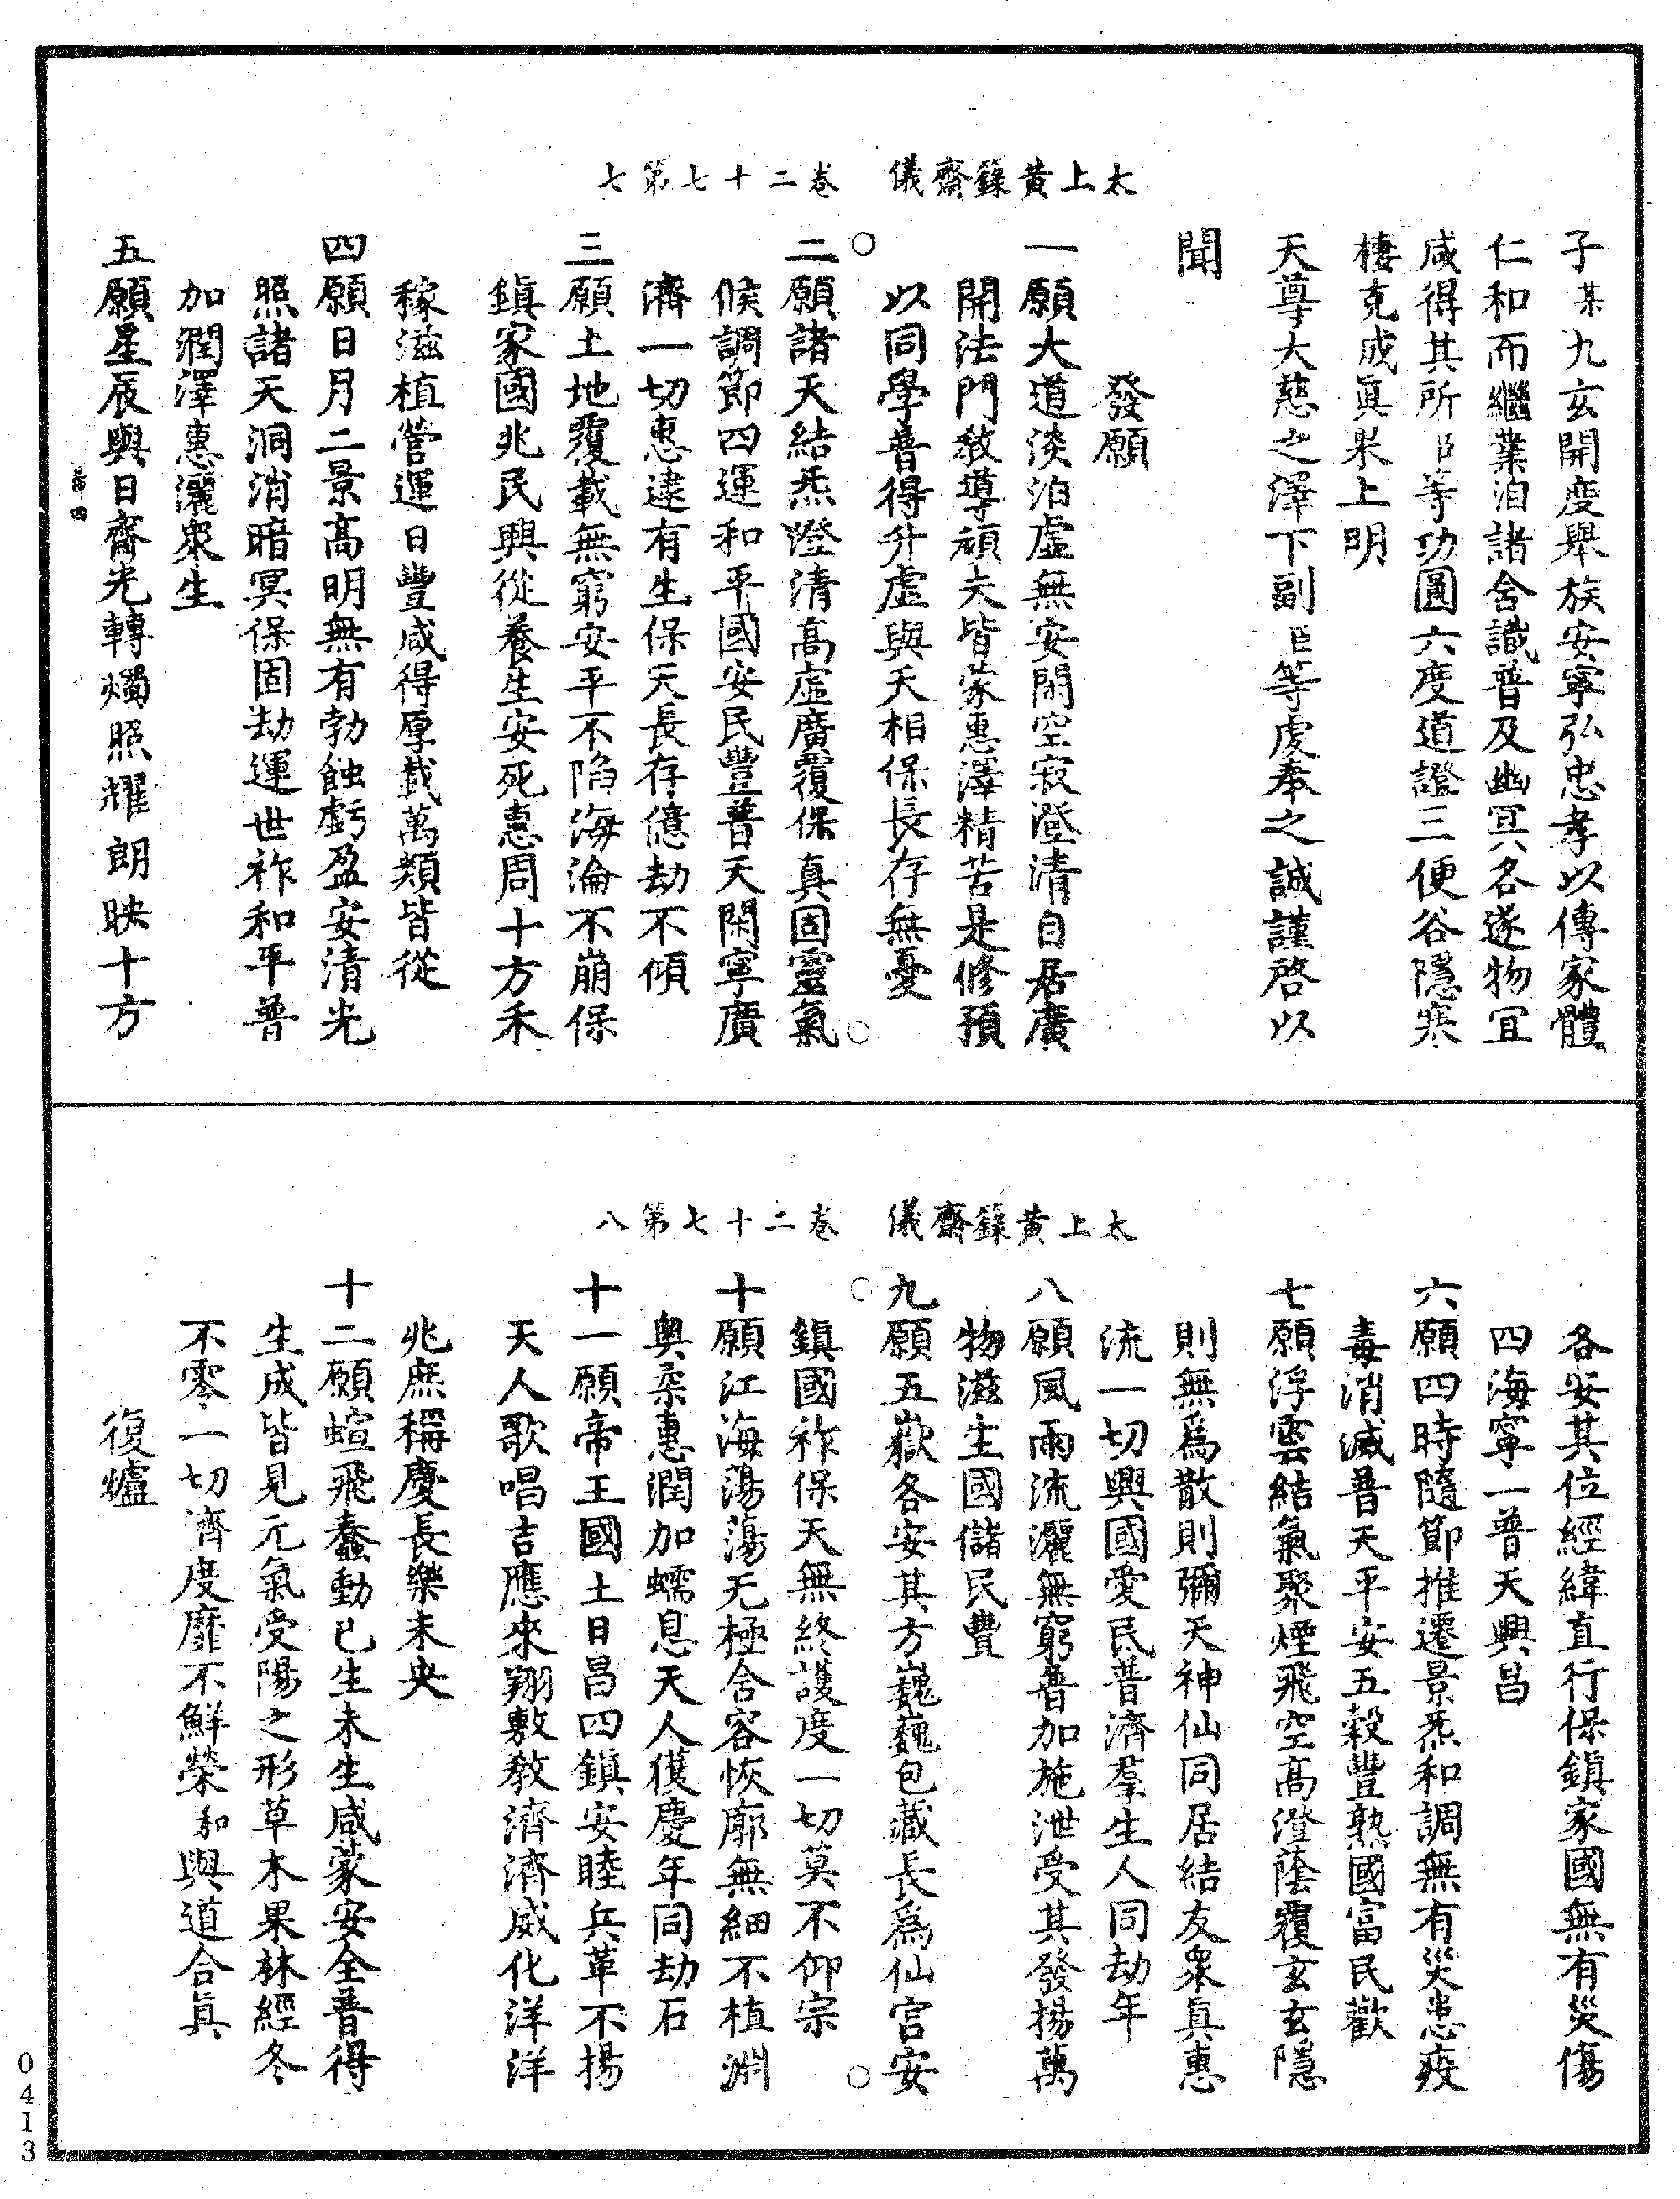 太上黃籙齋儀　卷二十七第七
子某九玄開度舉族安寧弘忠孝以傳家體
仁和而繼業洎諸含識普及幽冥各遂物宜
咸得其所臣等功圓六度道證三便谷隱寒
棲克成眞果上明
天尊大慈之澤下副臣等虔奉之誠謹啓以
聞
發願
一願大道淡泊虛無安閑空寂澄清自居廣
開法門敎導頑夫皆蒙惠澤精苦是修預
以同學普得升虛與天相保長存無憂
二願諸天結炁澄清高虛廣覆保真固靈氣
候調節四運和平國安民豐普天閑寧廣
濟一切惠逮有生保天長存億劫不傾
三願土地覆載無窮安平不陷海淪不崩保
鎮家國兆民興從養生安死惠周十方禾
稼滋植營運日豐咸得厚載萬類皆從
四願日月二景高明無有勃蝕虧盈安清光
照諸天洞消暗冥保固劫運世祚和平普
加潤澤惠灑衆生
五願星辰與日齋光轉燭照耀朗映十方
四
太上黃籙齋儀　卷二十七第八
各安其位經緯直行保鎮家國無有災傷
四海寧一普天興昌
六願四時隨節推遷景炁和調無有災患疫
毒消滅普天平安五穀豐熟國富民歡
七願浮雲結氣聚煙飛空高澄蔭覆玄玄隱
則無爲散則彌天神仙同居結友衆真惠
流一切興國愛民普濟羣生人同劫年
八願風雨流灑無窮普加施泄受其發揚萬
物滋生國儲民豐
九願五嶽各安其方巍巍包藏長爲仙宮安
鎮國祚保天無終護度一切莫不仰宗
十願江海蕩蕩无極含容恢廓無細不植淵
奧柔惠潤加蠕息天人獲慶年同劫石
十一願帝王國土日昌四鎮安睦兵革不揚
天人歌唱吉應來翔敷敎濟濟威化洋洋
兆庶稱慶長樂未央
十二願蝖飛蠢動已生未生咸蒙安全普得
生成皆見元氣受陽之形草木果林經冬
不零一切濟度靡不鮮榮和與道合眞
復爐
0413